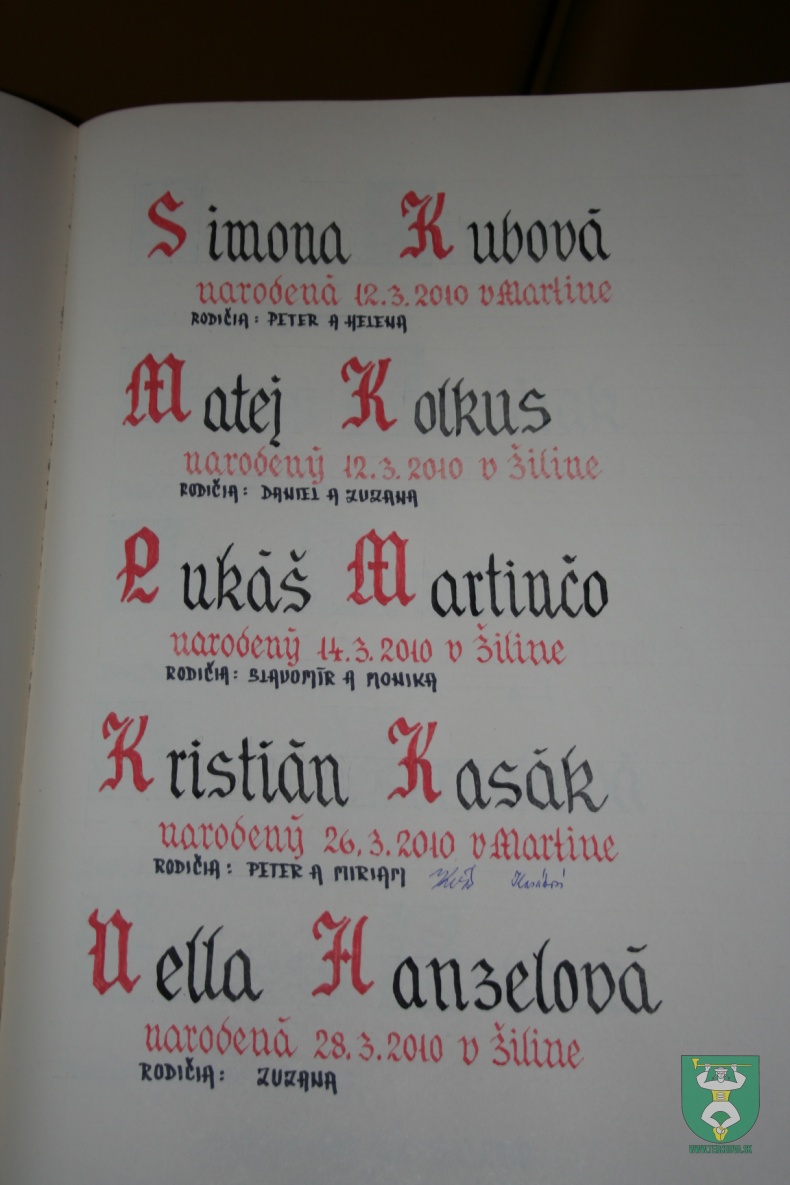 Simona Kubová
narodená 12.3.2010 v Martine
RODIČIA: PETER A HELENA
Matej Kolkus
narodený 12.3.2010 v Žiline
RODIČIA: DANIEL A ZUZANA
Lukáš Martinčo
narodený 14.3.2010 v Žiline
RODIČIA: SLAVOMÍR A MONIKA
Kristián Kasák
narodený 26.3.2010 v Martine
RODIČIA: PETER A MIRIAM Kasáková
Nella Hanzelová
narodená 28.3.2010 v Žiline
RODIČIA: ZUZANA
WWW.TERCHOVA.SK